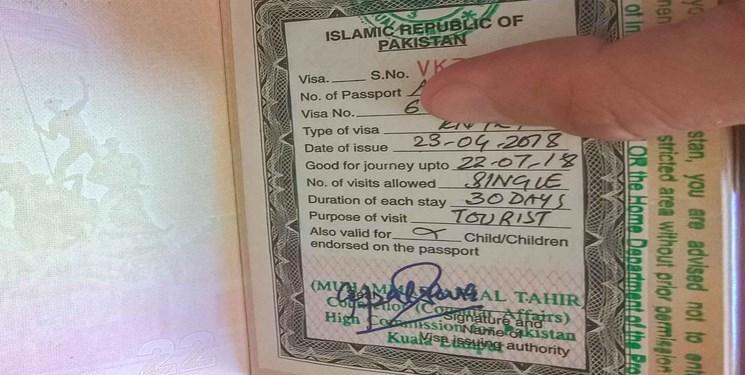 ISLAMIC REPUBLIC OF
PAKISTAN
Visa. S.No. VK
No. of Passport
Visa No. 6
Type of visa ENTRY
Date of issue 23-04-2018
Good for journey upto 22-07-18
No. of visits allowed SINGLE
Duration of each stay 30 DAYS
Purpose of visit TOURIST
Also valid for Child/Children
endorsed on the passport
AL TAHIR)
Affairs)
High Commission Pakistan
Kuala Lumpur
Signature and
Name of
Visa issuing authority
stan, you are advised not to
stricted area without prior permission
OR the Home Department of the